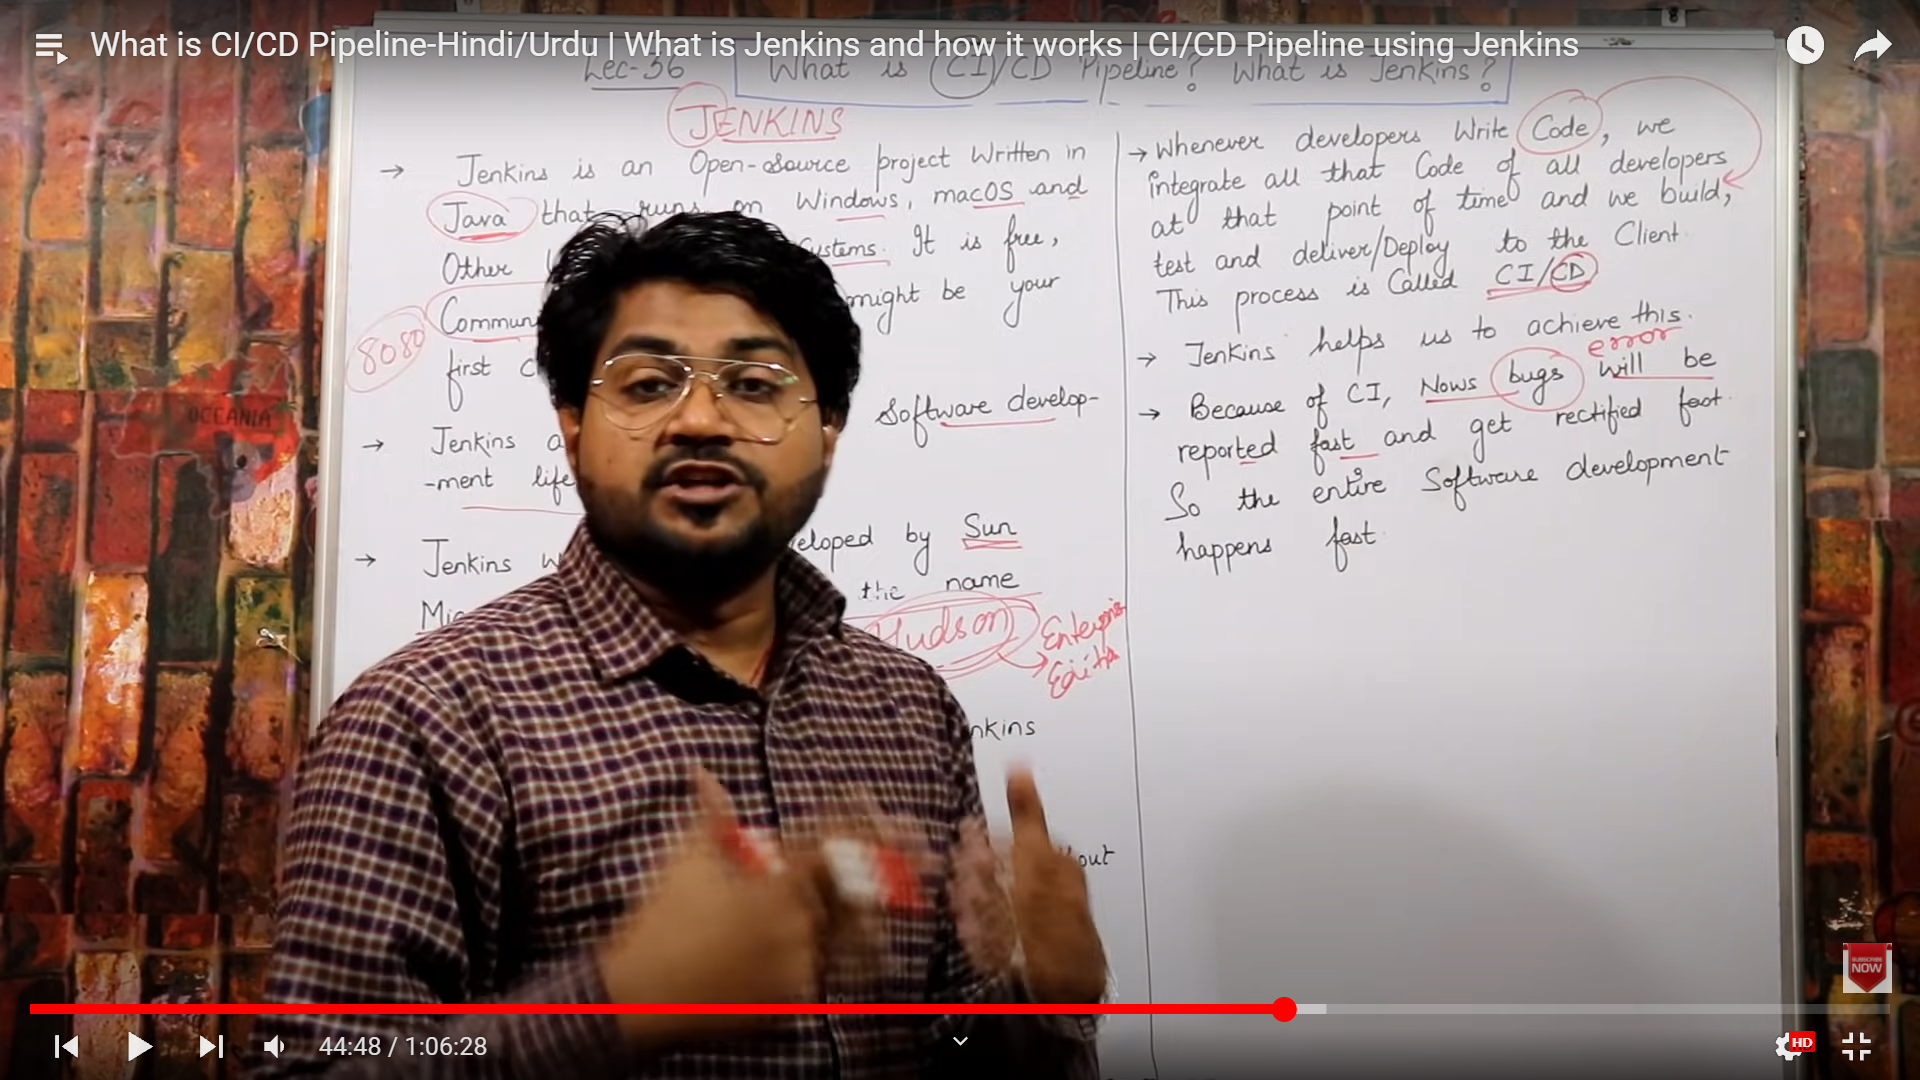 What is CI/CD Pipeline-Hindi/Urdu | What is Jenkins and how it works | CI/CD Pipeline using Jenkins
Lec-56 What is CI/CD Pipeline? What is Jenkins?
JENKINS
→ Jenkins is an Open-source project Written in
Java that runs on Windows, macOS and
Other It is free,
might be your
8080
first
→ Jenkins Software develop-
-ment life
→ Jenkins by Sun
the name
Hudson
→ Whenever developers Write Code, we
integrate all that Code of all developers
at that point of time and we build,
test and deliver/Deploy to the Client.
This process is Called CI/CD
→ Jenkins helps us to achieve this.
error
→ Because of CI, Nows bugs will be
reported fast and get rectified fast.
So the entire Software development
happens fast.
OCEANIA
SUBSCRIBE
NOW
44:48 / 1:06:28
HD